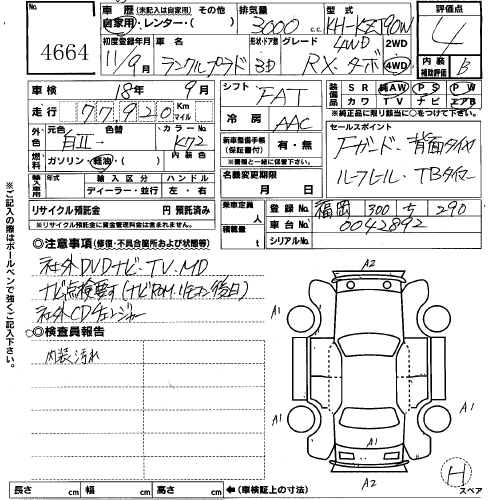 No. 4664
車歴 (未記入は自家用) その他
自家用・レンター・( )
排気量 3000 c.c.
型式 KH-KZJ90W
評価点 4
初度登録年月 11/9月
車名 ランクルプラド
形状・ドア数 3D
グレード 4WD RX ターボ
2WD
4WD
内装補助評価 B
車検 18年 9月
走行 77,920 Km マイル
シフト FAT
冷房 AAC
装備品 SR 純AW PS PW
カワ TV ナビ エアB
※純正品に限り該当に○をつけて下さい。
外色 元色 白II 色替
カラーNo K72
内装色
燃料 ガソリン・軽油・( )
新車整備手帳(保証書付) 有・無
※書類と一緒に保管して下さい。
セールスポイント
Fガード・背面タイヤ
ルーフレール・TBタイマー
輸入車用 年式 輸入区分 ハンドル
ディーラー・並行 左・右
名義変更期限 月 日
リサイクル預託金 円 預託済み
※リサイクル預託金に資金管理料金は含まれません。
乗車定員 人
積載量 t
登録No 福岡 300 ち 290
車台No 0042892
シリアルNo
◎注意事項 (修復・不具合箇所および状態等)
社外DVDナビ・TV・MD
ナビ点検要す(ナビROM、リモコン後日)
社外CDチェンジャー
◎検査員報告
内装汚れ
A2
A1
A1
A1
A1
A2
A1
A2
H
スペア
長さ cm 幅 cm 高さ cm ←(車検証上の寸法)
※ご記入の際はボールペンで強くご記入下さい。